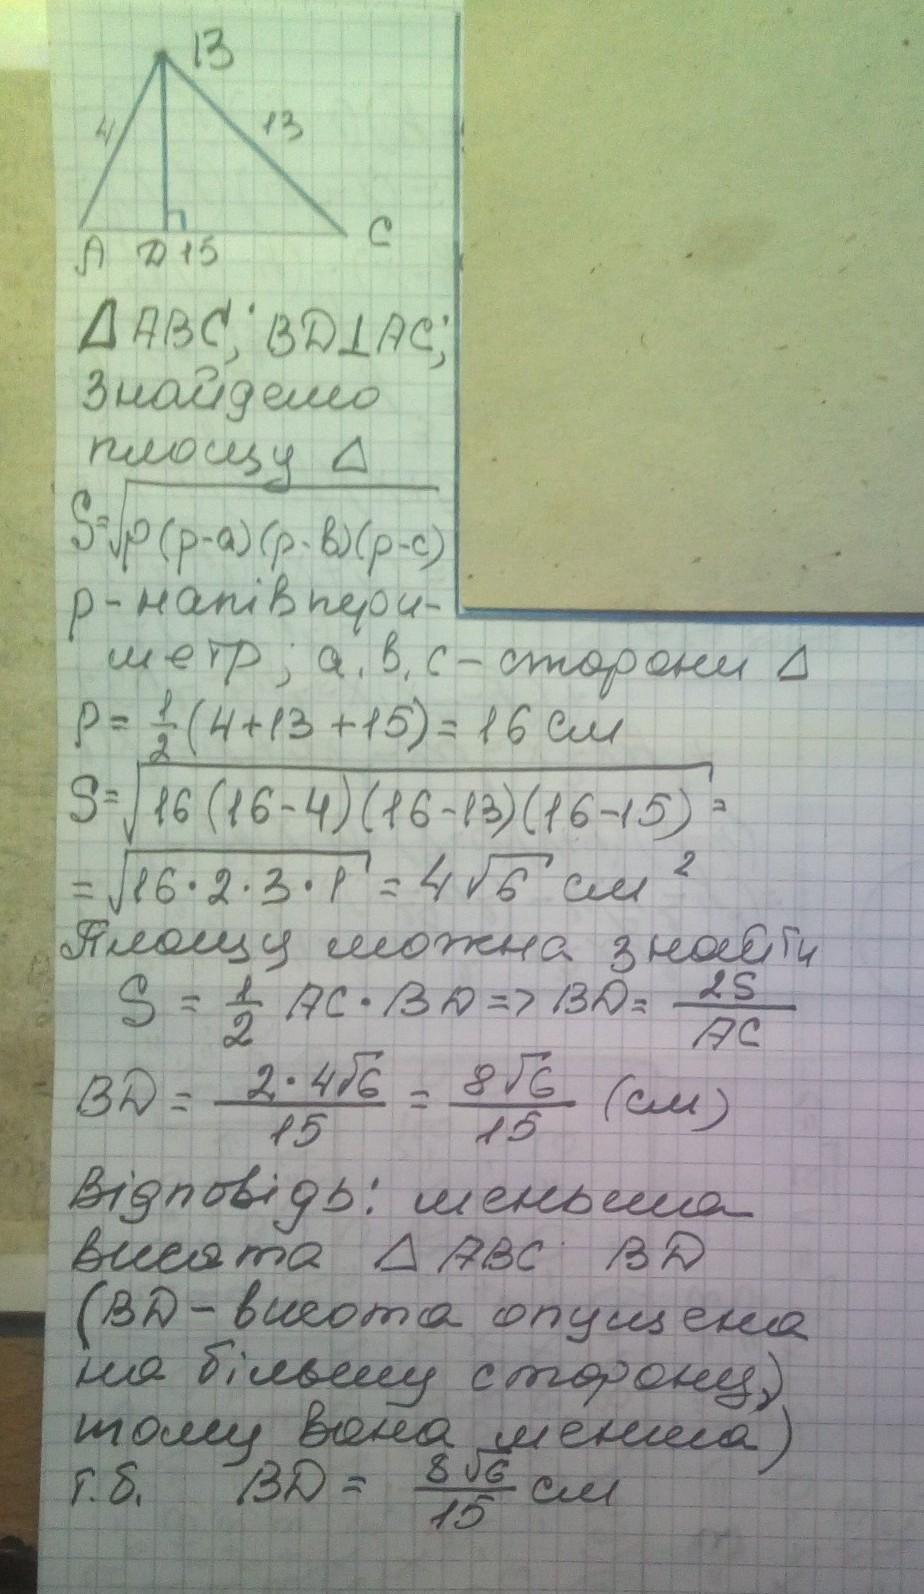 B
4
13
A D 15 C
Δ ABC; BD⊥AC;
Знайдемо
площу Δ
S=√p(p-a)(p-b)(p-c)
p - напівпери-
метр; a, b, c - сторони Δ
P = 1/2 (4+13+15) = 16 см
S=√16(16-4)(16-13)(16-15) =
= √16·2·3·1 = 4√6 см²
Площу можна знайти
S = 1/2 AC·BD => BD = 2S/AC
BD = 2·4√6/15 = 8√6/15 (см)
Відповідь: меньша
висота Δ ABC BD
(BD - висота опущена
на більшу сторону,
тому вона менша)
т.б. BD = 8√6/15 см